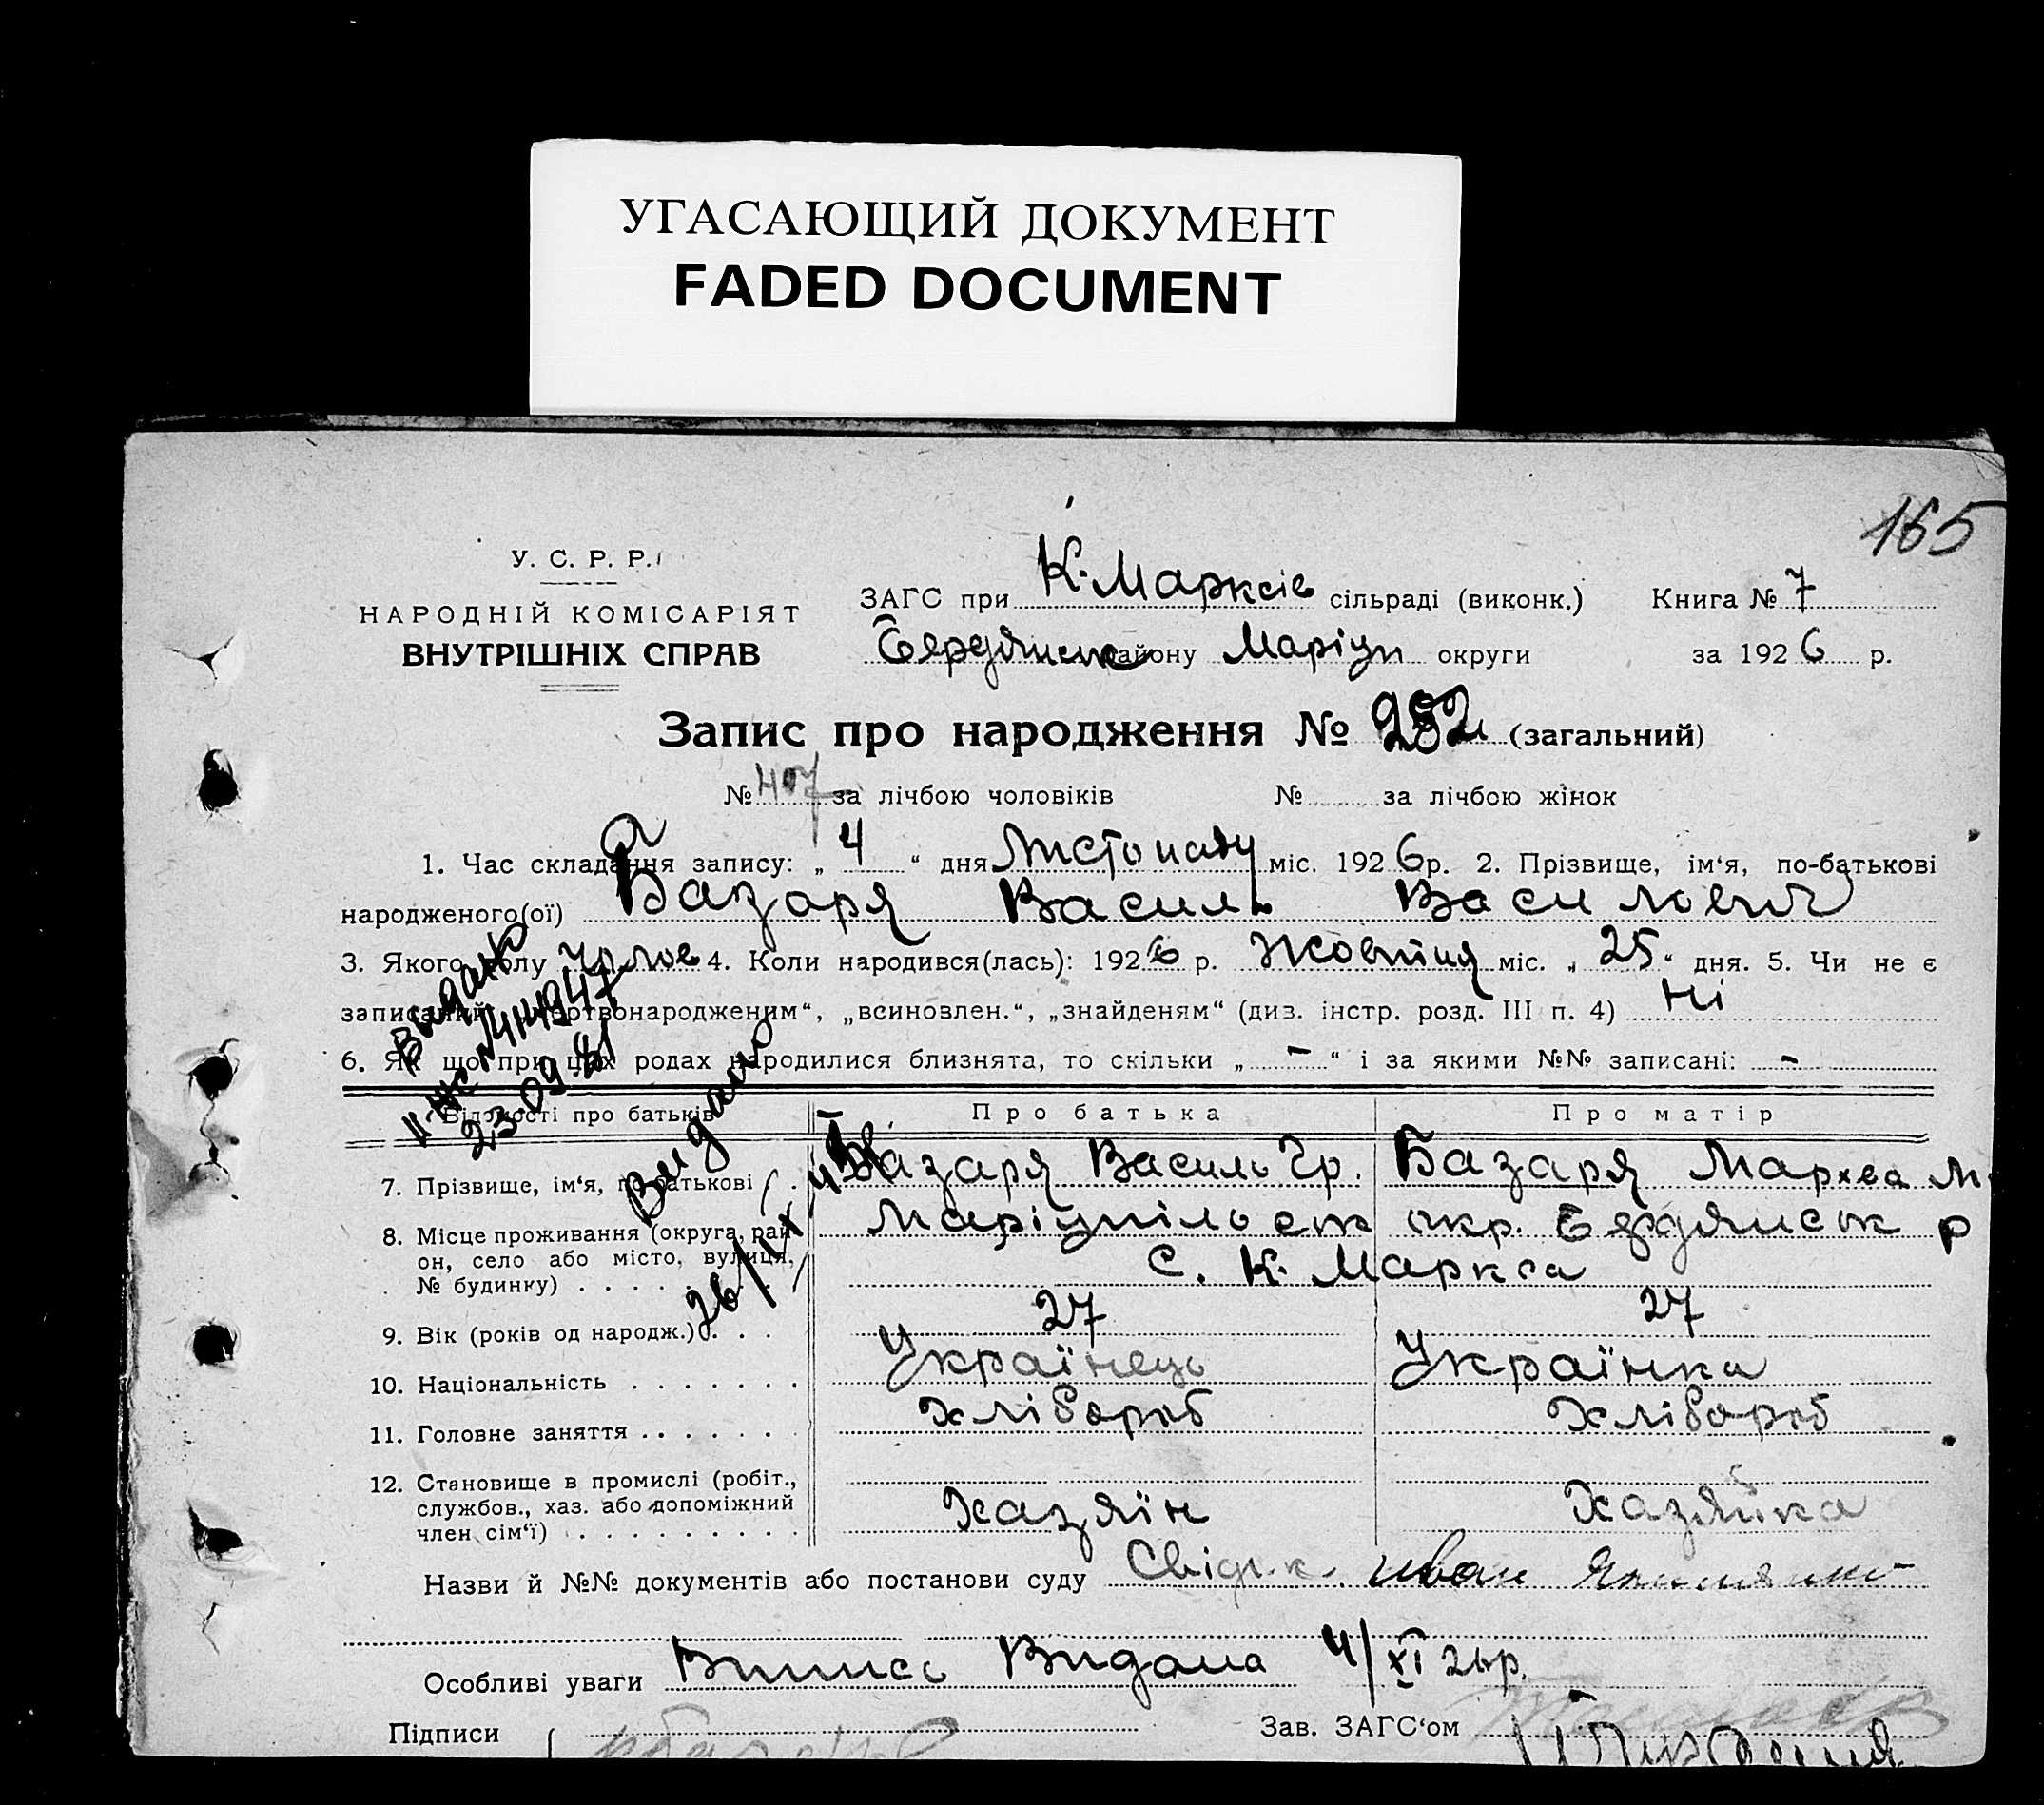 УГАСАЮЩИЙ ДОКУМЕНТ
FADED DOCUMENT
165
У. С. Р. Р.
НАРОДНІЙ КОМІСАРІЯТ
ВНУТРІШНІХ СПРАВ
ЗАГС при К. Марксів сільраді (виконк.) Книга № 7
Бердянськ району Маріуп округи за 1926 р.
Запис про народження № 282 (загальний)
№ 407 за лічбою чоловіків № за лічбою жінок
1. Час складання запису: „ 4 “ дня Листопаду міс. 1926 р. 2. Прізвище, ім‘я, по-батькові
народженого(ої) Базаря Василь Васильович
3. Якого полу чолов 4. Коли народився(лась): 1926 р. Жовтня міс. „ 25 “ дня. 5. Чи не є
записаний „мертвонародженим“, „всиновлен.“, „знайденям“ (див. інстр. розд. III п. 4) Ні
6. Як що при цих родах народилися близнята, то скільки „ — “ і за якими №№ записані: —
Відомості про батьків Про батька Про матір
7. Прізвище, ім‘я, по-батькові Базаря Василь Гр. Базаря Мархва М.
8. Місце проживання (округа, рай- Маріупільськ окр. Бердянськ р
он, село або місто, вулиця, с. К. Маркса
№ будинку)
9. Вік (років од народж.) 27 27
10. Національність Українець Українка
11. Головне заняття Хлібороб Хлібороб
12. Становище в промислі (робіт.,
службов., хаз. або допоміжний Хазяїн Хазяйка
член сім‘ї)
Назви й №№ документів або постанови суду Свідк. Иван
Особливі уваги Випись Видана 4/XI 26 р.
Підписи Зав. ЗАГС‘ом